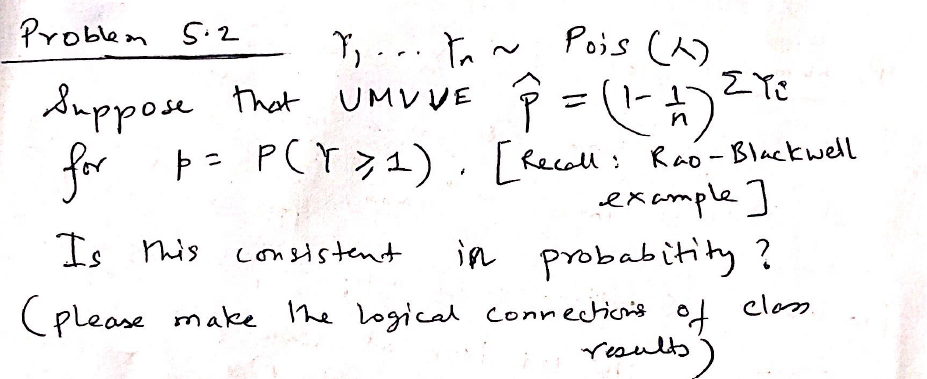 Problem 5.2 Y₁ ... Yₙ ~ Pois (λ)
Suppose that UMVUE p̂ = (1 - 1/n)^ΣYᵢ
for p = P(Y ≥ 1). [Recall: Rao-Blackwell
example]
Is this consistent in probabitity?
(please make the logical connections of class
results)